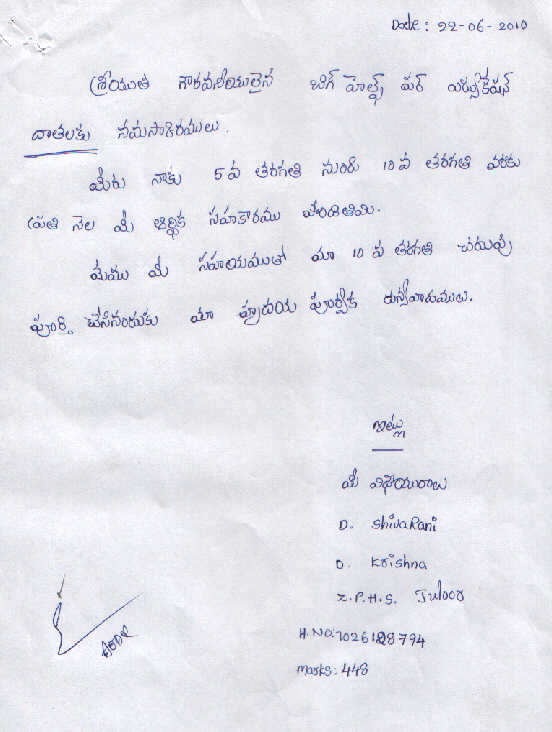 Date: 22-06-2010
శ్రీయుత గౌరవనీయులైన బిగ్ హెల్ప్ ఫర్ ఎడ్యుకేషన్
దాతలకు నమస్కారములు.
మీరు నాకు 5వ తరగతి నుండి 10వ తరగతి వరకు
ప్రతి నెల మీ ఆర్థిక సహకారము పొందితిమి.
మేము మీ సహాయముతో మా 10వ తరగతి చదువు
పూర్తి చేసినందుకు మా హృదయ పూర్వక ధన్యవాదములు.
ఇట్లు
మీ విధేయురాలు
D. ShivaRani
D. Krishna
Z.P.H.S. Juloor
H.No:1026128794
Marks: 448